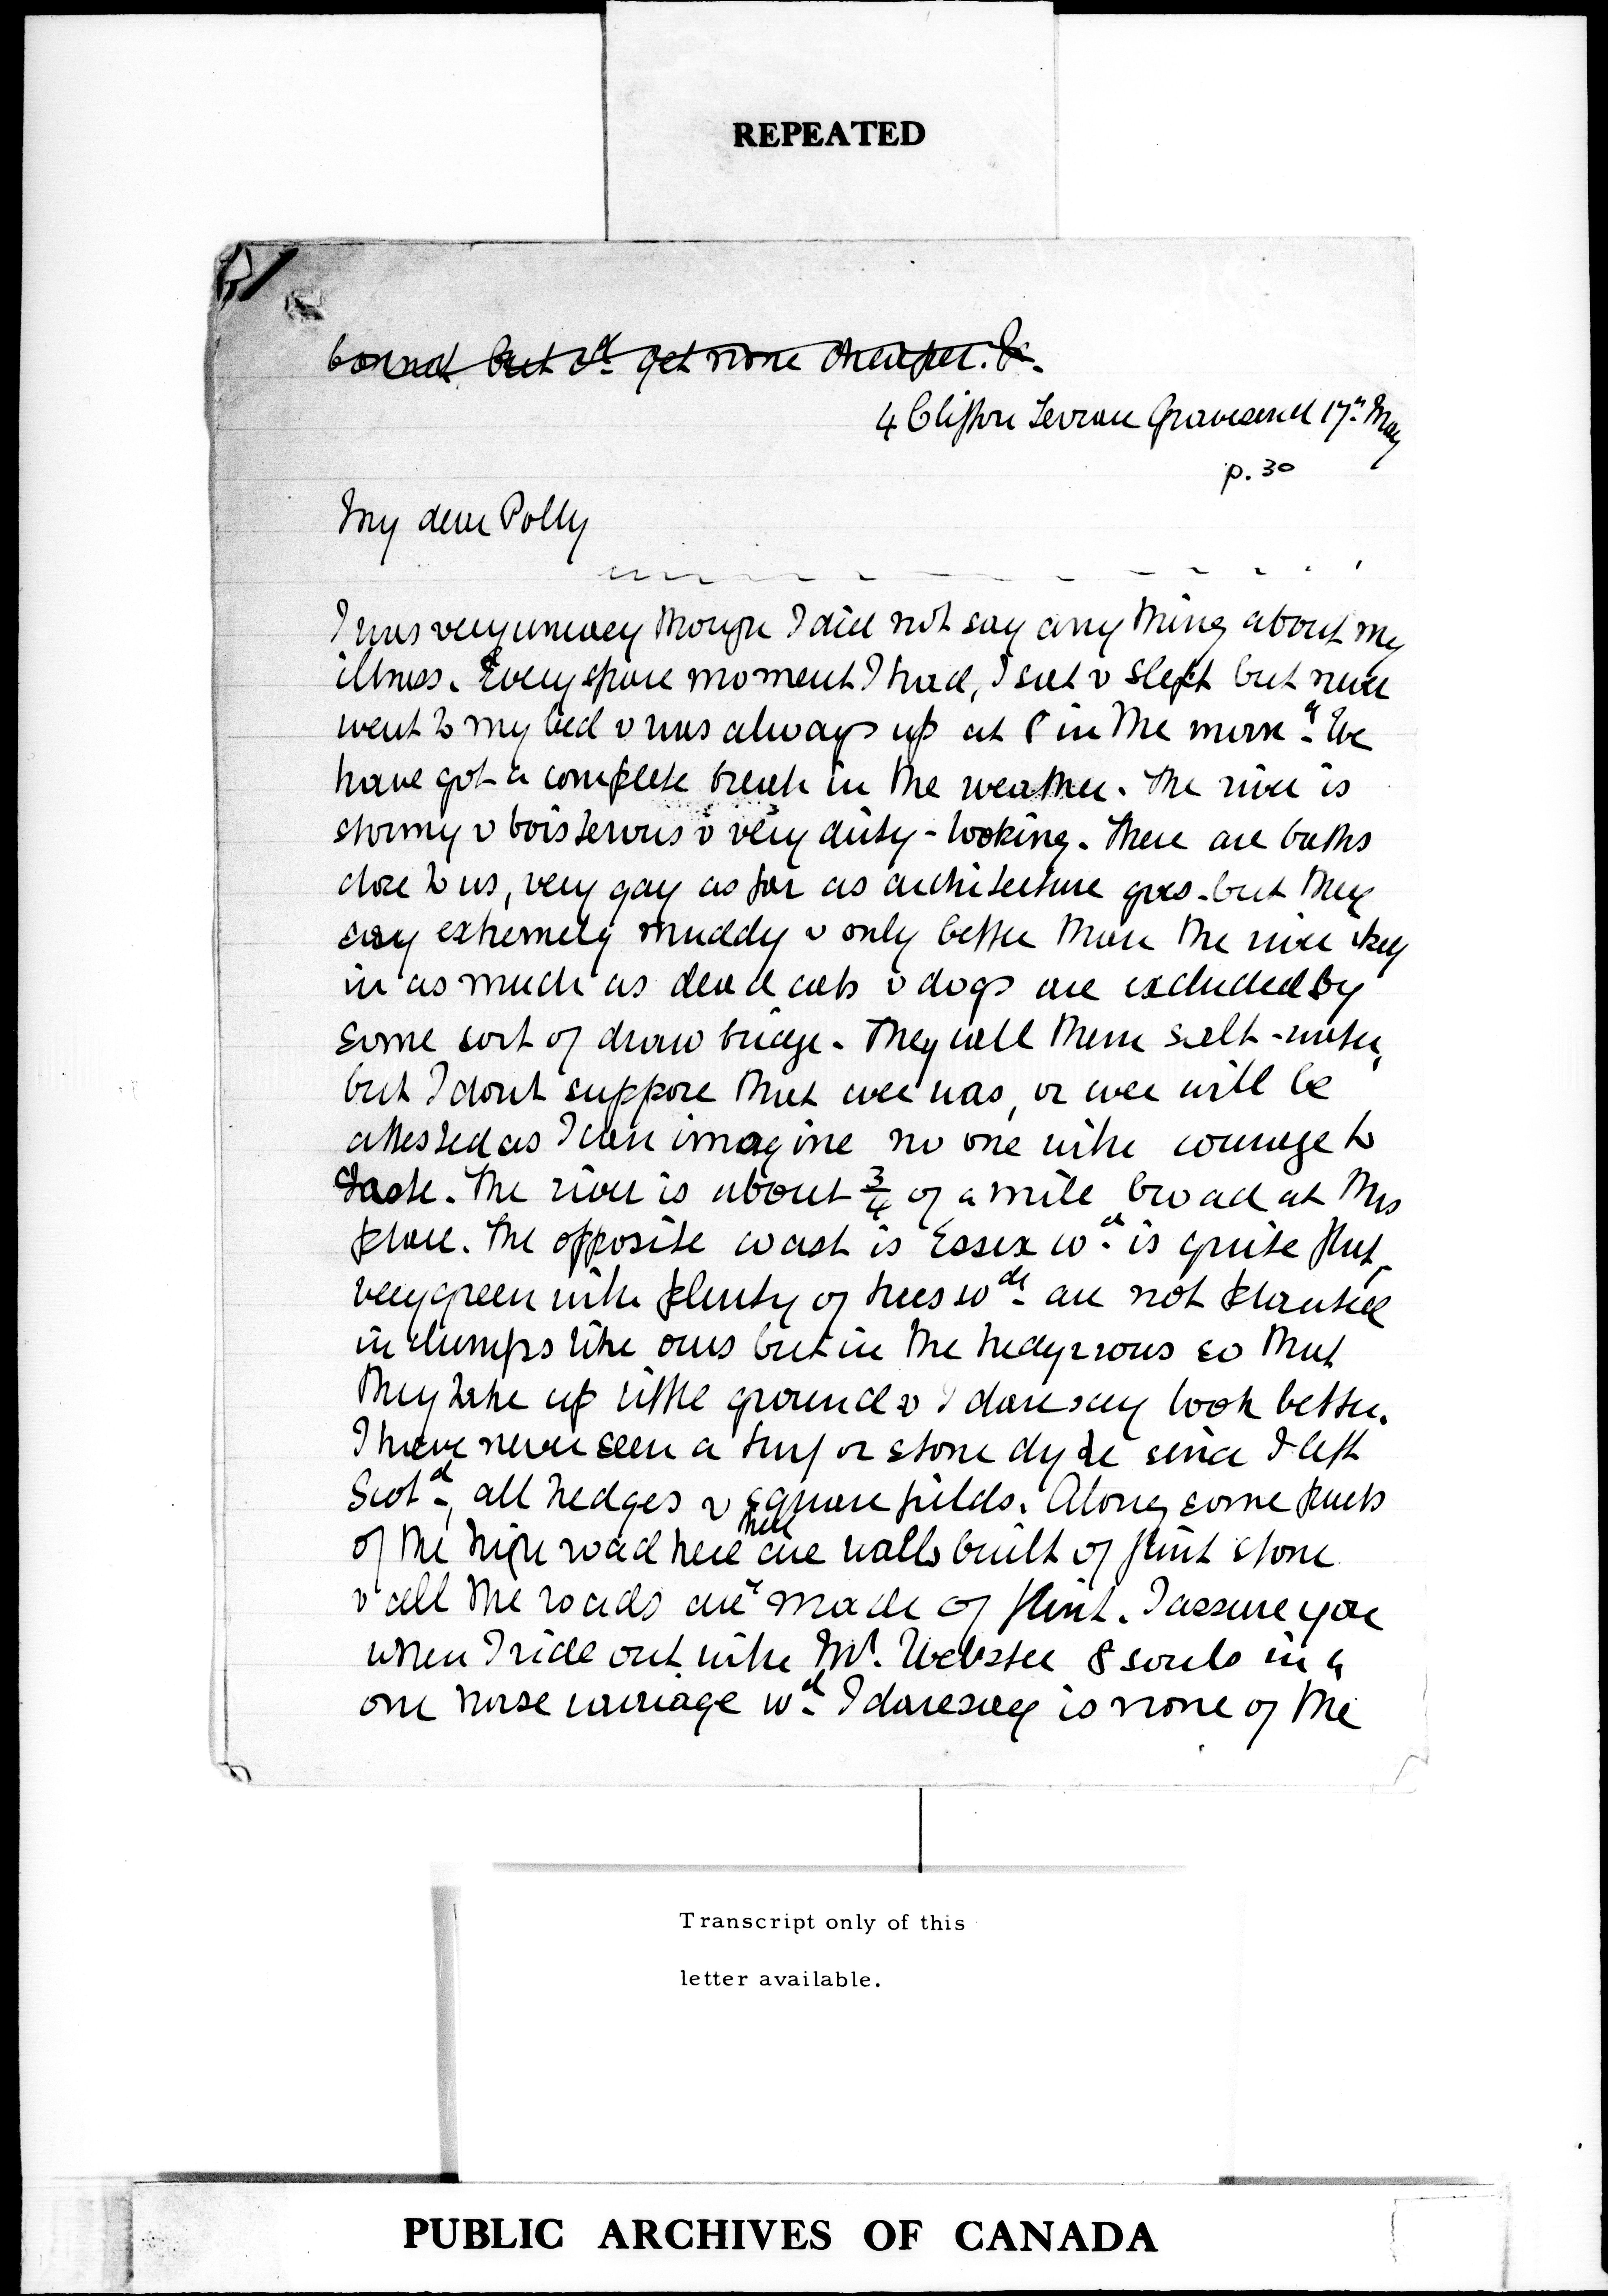 REPEATED
bonnet but cd get none cheaper. &c.
4 Clifton Terrace Gravesend 17th May
p. 30
My dear Polly
I was very uneasy though I did not say any thing about my
illness. Every spare moment I had, I sat & slept but never
went to my bed & was always up at 8 in the morng. We
have got a complete break in the weather. The river is
stormy & boisterous & very dirty-looking. There are baths
close to us, very gay as far as architecture goes - but they
say extremely muddy & only better than the river
in as much as dead cats & dogs are excluded by
some sort of draw bridge. They call them salt-water,
but I dont suppose that ever was, or ever will be
attested as I can imagine no one with courage to
taste. The river is about 3/4 of a mile broad at this
place. The opposite coast is Essex wch is quite flat,
very green with plenty of trees wch are not planted
in clumps like ours but in the hedgerows so that
they take up little ground & I daresay look better.
I have never seen a turf or stone dyke since I left
Scotd, all hedges & square fields. Along some parts
of the high road here there are walls built of flint stone
& all the roads are made of flint. I assure you
when I ride out with Mr. Webster 8 souls in a
one horse carriage wch I daresay is none of the
Transcript only of this
letter available.
PUBLIC ARCHIVES OF CANADA